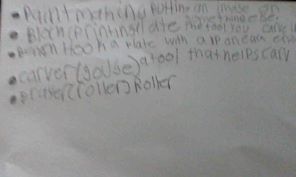 • Printmaking Putting an image on
something else.
• Block (printing) plate the tool you carve
• Bench Hook a plate with a on each end
• carver (gouge) a tool that helps carv
• brayer (roller) Roller